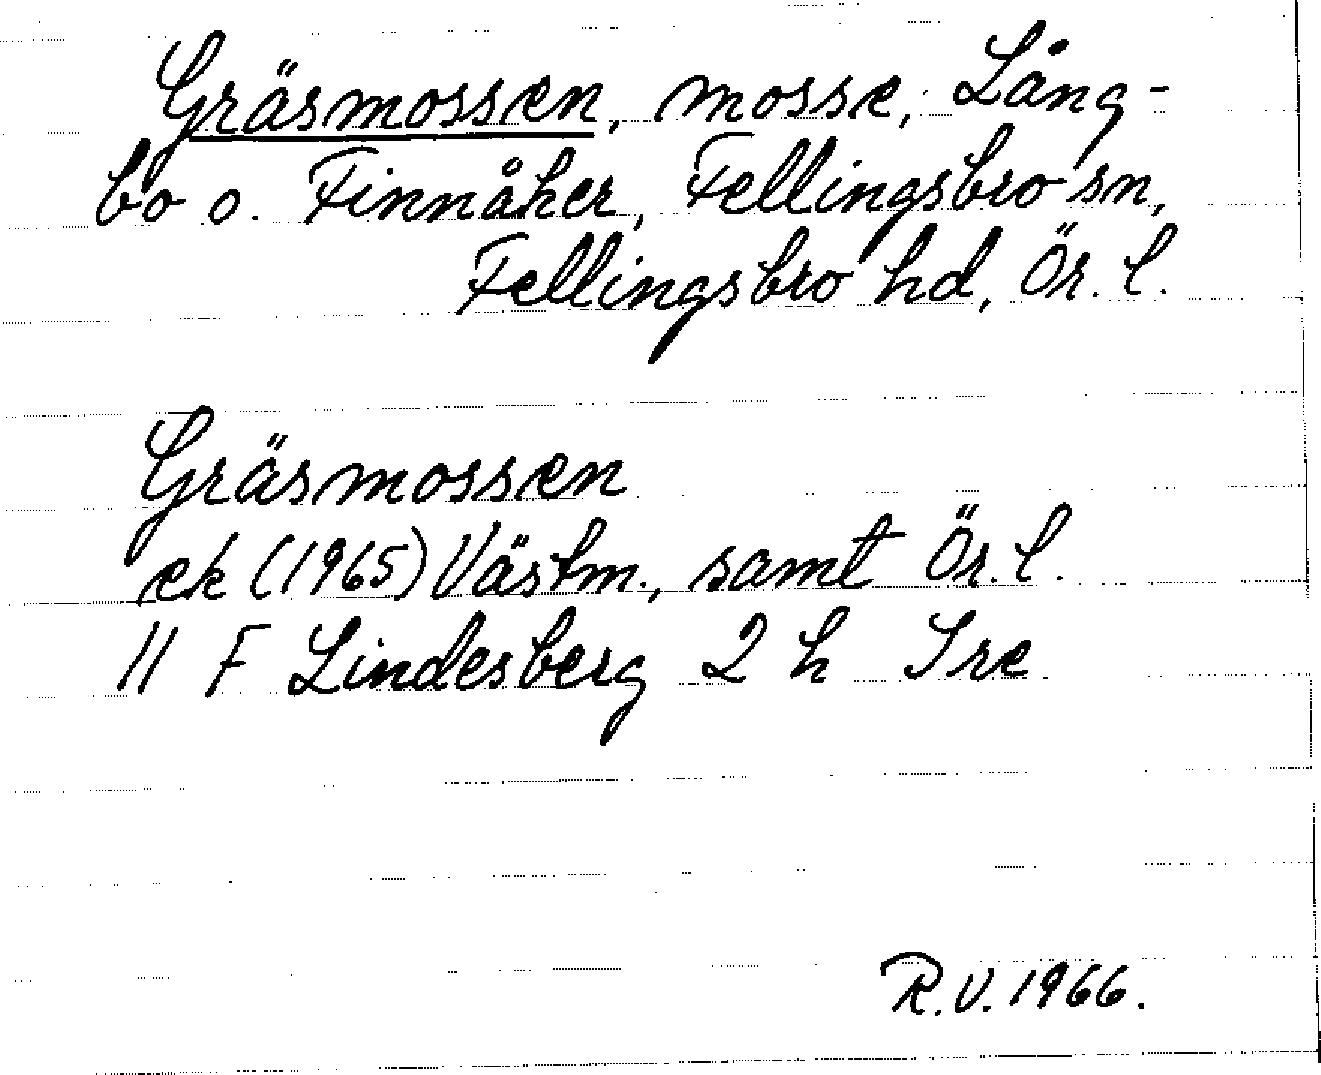 Gräsmossen, mosse, Lång-
bo o. Finnåker, Fellingsbro sn,
Fellingsbro hd, Ör. l.
Gräsmossen
ek (1965) Västm., samt Ör. l.
11 F Lindesberg 2 h Sre
R.V. 1966.